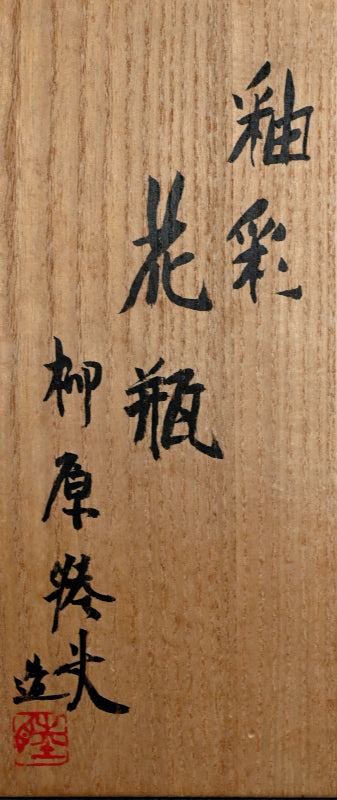 釉彩
花瓶
柳原睦夫
造
睦